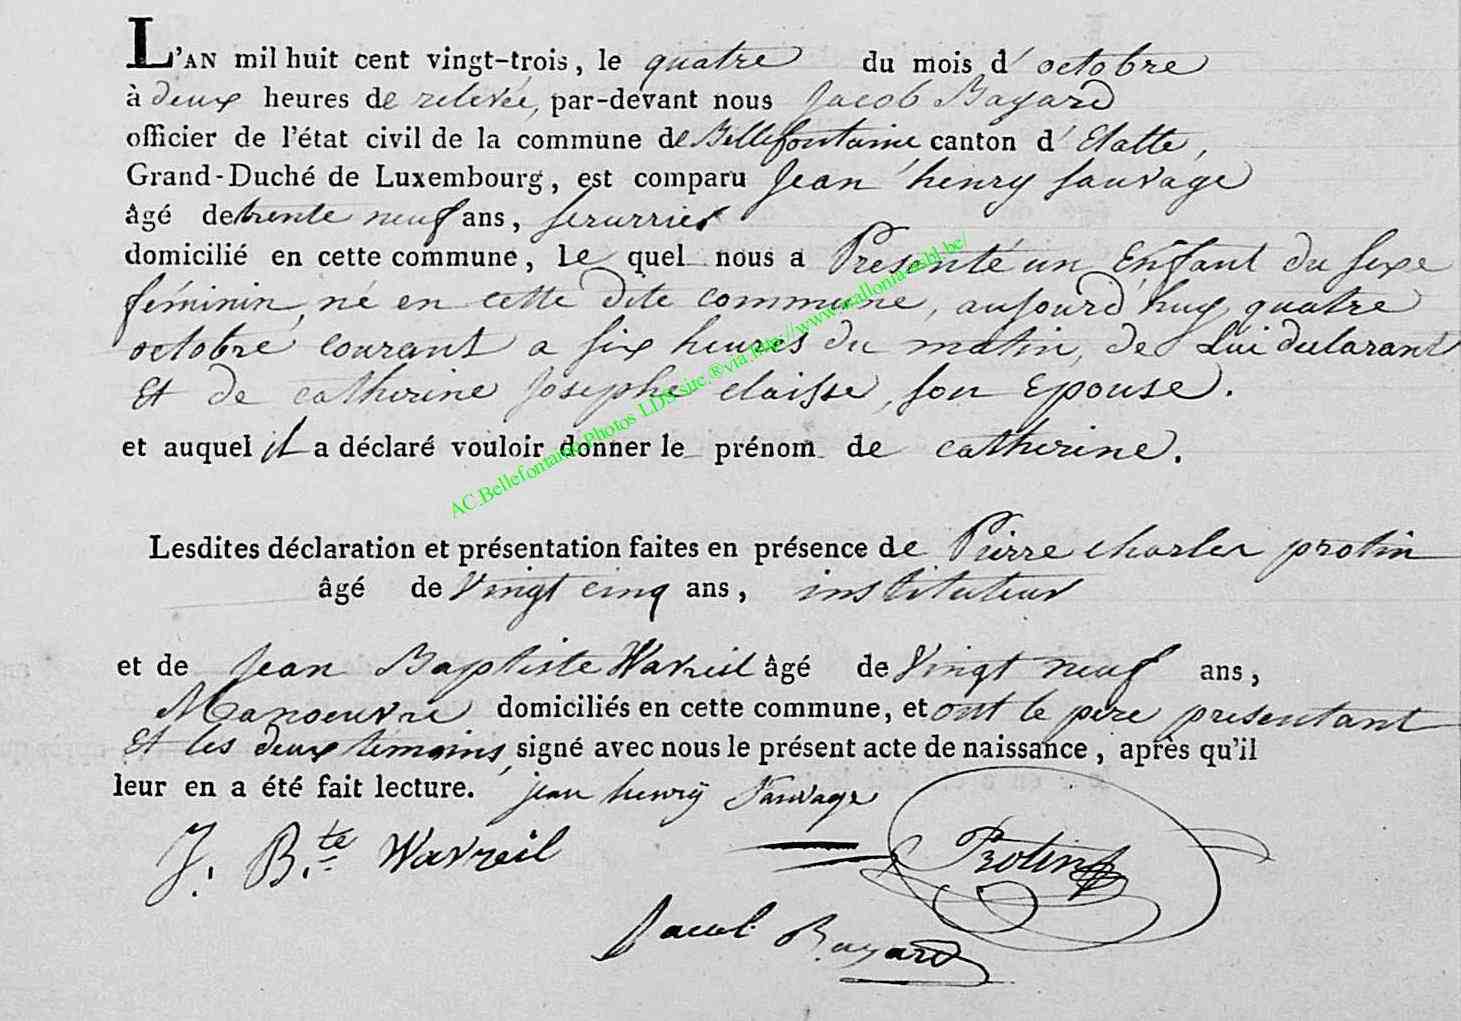 L'AN mil huit cent vingt-trois, le quatre du mois d' octobre
à deux heures de relevée, par-devant nous Jacob Bayard
officier de l'état civil de la commune de Bellefontaine canton d' Etatte,
Grand-Duché de Luxembourg, est comparu Jean henry sauvage
âgé de trente neuf ans, serurrier
domicilié en cette commune, le quel nous a Presenté un Enfant du sexe
féminin, né en cette dite commune, aujourd'huy quatre
octobre courant a six heures du matin, de Lui declarant
Et de catherine Josephe claisse, son Epouse.
et auquel il a déclaré vouloir donner le prénom de catherine.
Lesdites déclaration et présentation faites en présence de Pierre charles protin
âgé de Vingt cinq ans, instituteur
et de Jean Baptiste Wavreil âgé de Vingt neuf ans,
Manoeuvre domiciliés en cette commune, et ont le pere presentant
Et les deux témoins, signé avec nous le présent acte de naissance, après qu'il
leur en a été fait lecture. jean henry Sauvage
J. B.te Wavreil Protin
Jacob Bayard
AC.Bellefontaine.Photos LDS.suc.®via.http://www.wallonia-asbl.be/